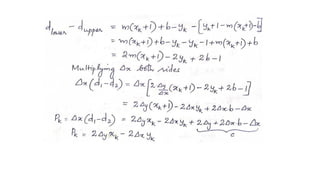 d lower − d upper = m(xₖ+1)+b−yₖ − [yₖ+1−m(xₖ+1)−b]
= m(xₖ+1)+b−yₖ−yₖ−1+m(xₖ+1)+b
= 2m(xₖ+1)−2yₖ+2b−1
Multiplying Δx both sides
Δx(d₁−d₂) = Δx[2 Δy/Δx (xₖ+1)−2yₖ+2b−1]
= 2Δy(xₖ+1)−2Δxyₖ+2Δxb−Δx
Pₖ = Δx(d₁−d₂) = 2Δyxₖ−2Δxyₖ+2Δy+2Δxb−Δx
c
Pₖ = 2Δyxₖ−2Δxyₖ